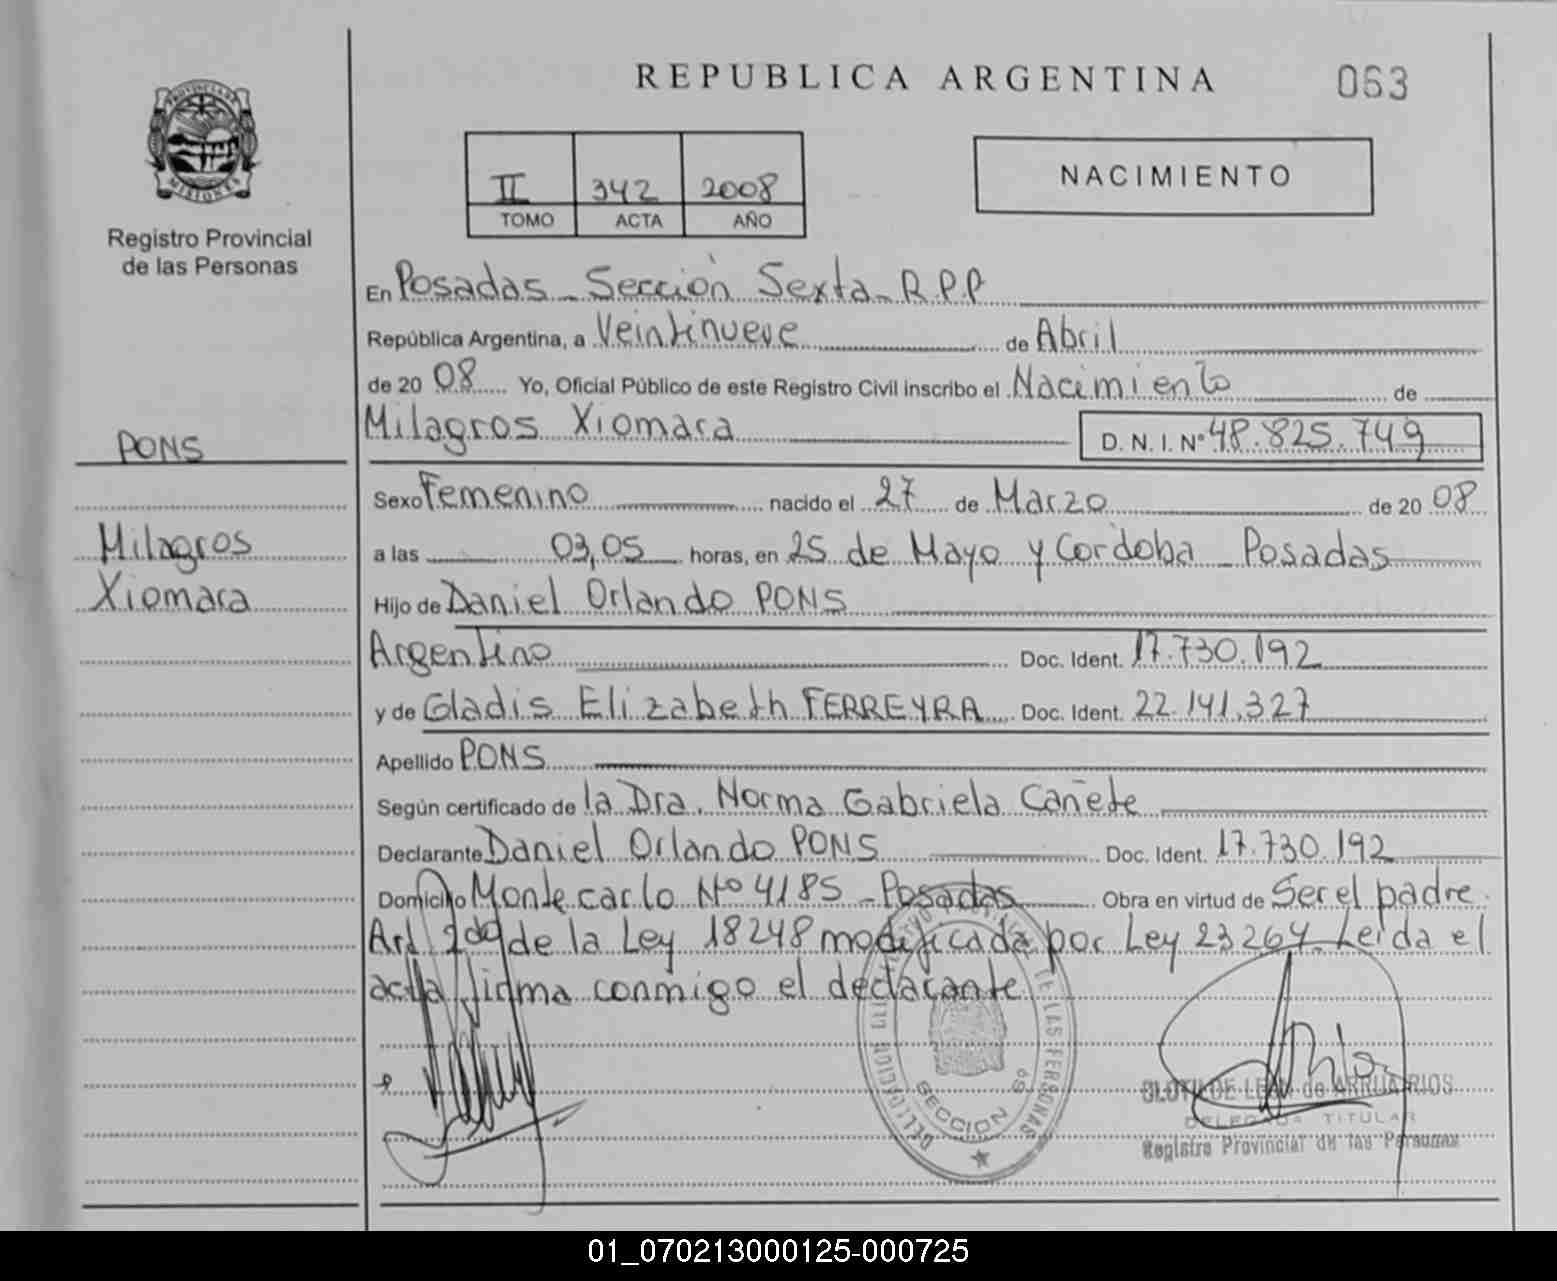 REPUBLICA ARGENTINA
063
PROVINCIA DE
MISIONES
Registro Provincial
de las Personas
II 342 2008
TOMO ACTA AÑO
NACIMIENTO
En Posadas - Sección Sexta - R.P.P
República Argentina, a Veintinueve de Abril
de 20 08 Yo, Oficial Público de este Registro Civil inscribo el Nacimiento de
Milagros Xiomara D. N. I. Nº 48.825.749
PONS
Milagros
Xiomara
Sexo Femenino nacido el 27 de Marzo de 20 08
a las 03,05 horas, en 25 de Mayo y Cordoba - Posadas
Hijo de Daniel Orlando PONS
Argentino Doc. Ident. 17.730.192
y de Gladis Elizabeth FERREYRA Doc. Ident. 22.141.327
Apellido PONS
Según certificado de la Dra. Norma Gabriela Cañete
Declarante Daniel Orlando PONS Doc. Ident. 17.730.192
Domicilio Montecarlo Nº 4185 - Posadas Obra en virtud de Ser el padre.
Art. de la Ley 18248 modificada por Ley 23264. Leida el
acta firma conmigo el declarante
DE LAS PERSONAS
DELEGACION
SECCION 6º
CLOTILDE LEON de ARRUA RIOS
DELEGADA TITULAR
Registro Provincial de las Personas
01_070213000125-000725